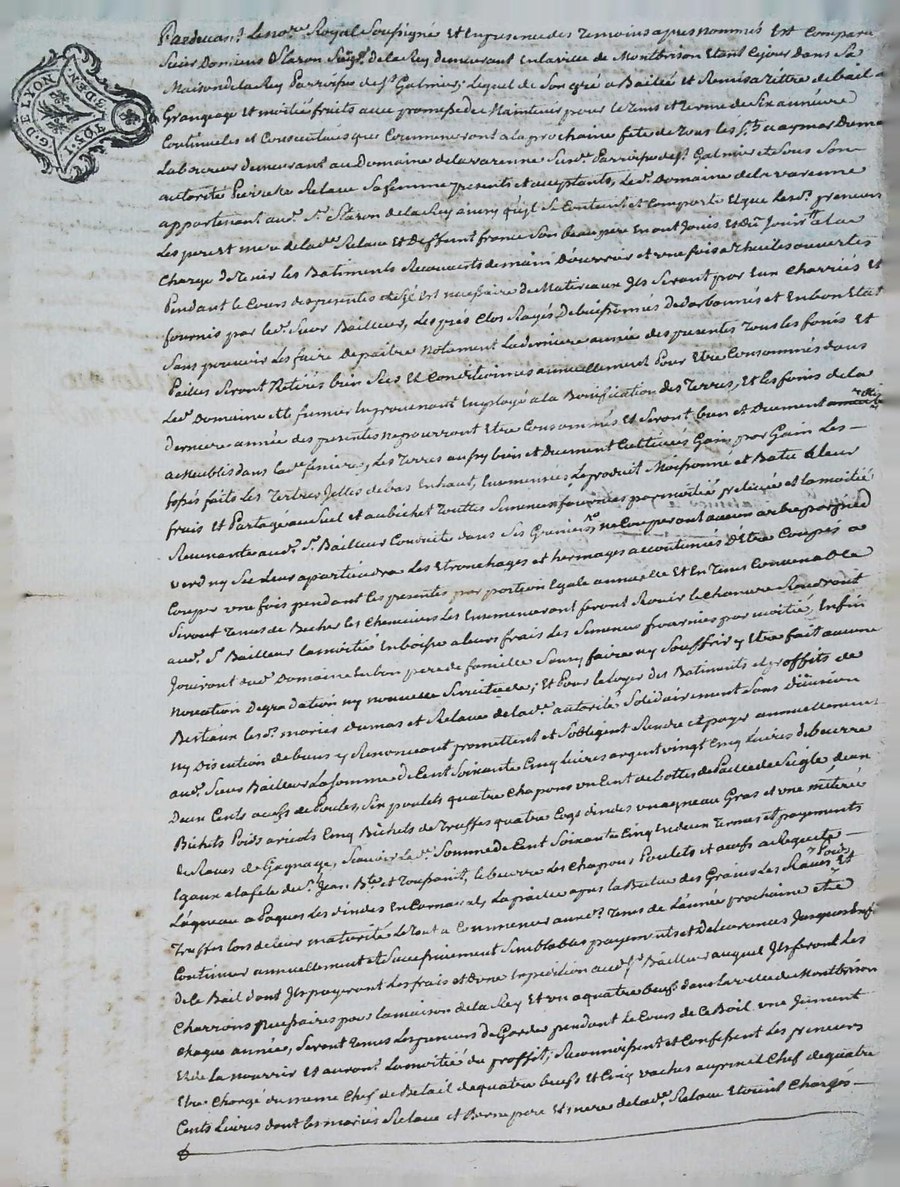 G. DE LYON 3. DEN. 1. SOL
Pardevant Le no.re Royal Soussigné Et En presence des Temoins apres nommés Est Comparu
Sieur Dominus Staron Seig.r de la Rey demeurant En la ville de Montbrison Etant Cejour dans Sa
Maison de la Rey Parroisse de S.t Galmier; Lequel de Son gré a Bailié et Remis a tittre de bail a
Grangeage et moitié fruits avec promesse de Maintenir pour le tems et terme de Six années
Continuelles et Consecutives qui Commenceront a la prochaine fete de Tous les S.ts a aymar Dumas
Laboureur demeurant au Domaine de la varenne Susd. Parroisse de S.t Galmier et Sous Son
autorité Pierrette Relave Sa femme presents et acceptants, Led. Domaine de la varenne
appartenant aud. S.r Staron de la Rey ainsy qu'il Se Contient et Comporte Et que Les d. preneurs
Les pere et mere de lad. Relave Et Deffunt france Son beau pere En ont Jouis Et du Jouir a la
Charge de tenir Les Batiments Recouverts de main d'ouvrier et une fois a thuiles ouvertes
Pendant Le Cours des presentes et S'il Est necessaire de Materiaux Ils Seront par Eux Charriés Et
fournis par led. Sieur Bailleur, Les prés Clos Rasés Debuissonnés Et En bon Etat
Sans pouvoir Les faire Depaitre Notament La derniere année des presentes Tous les foins Et
Pailles Seront Retirés bien Secs Et Conditionnés annuellement Pour Etre Consommés dans
Led. Domaine et le fumier En provenant Employé a la Bonification des Terres, Et les foins de la
derniere année des presentes ne pourront Etre Consommés Et Seront bien et Duement
ameublis dans lad. feniere, Les Terres aussy bien et Duement Cultivées Gain par Gain Les
fossés faits Les Tertres Jettés de bas En haut, Ensemencées Le produit Moissonné et Batu a leur
frais et Partagé au Suel et au bichet Touttes Semences fournies par moitié prelevée et la moitié
Revenante aud. S.r Bailleur Conduite dans Ses Greniers, ne Couperont aucun arbre par pied
verd ny Sec Leur apartiendra Les Etronchages et hermages accoutumés D'Etre Coupés a
Couper une fois pendant Les presentes par portion Egale annuelle Et En Tems Convenable
Seront Tenus de Becher Les Cheneviers Les Ensemenceront feront Rouir Le chanvre Rendront
aud. S.r Bailleur la moitié En boisse a leurs frais Les Semences fournies par moitié, Enfin
Jouiront dud. Domaine En bon pere de famille Sans y faire ny Souffrir y Etre fait aucune
novation Degradation ny nouvelle Servitude; Et Pour le Loyer des Batiments et proffits de
Bestiaux les d. mariés Dumas et Relave de lad. autorité Solidairement Sans division
ny Discution de biens y Renonceant promettent et S'obligent Rendre et payer annuellement
aud. Sieur Bailleur La Somme de Cent Soixante Cinq Livres argent vingt Cinq Livres de beurre
Deux Cents œufs de Poules, Six poulets quatre Chapons un Cent de bottes de Paille de Seigle deux
Bichets Poids aricots Cinq Bichets de Truffes quatre Coqs dindes un agneau Gras et une
de Raves de Gagnage, Scavoir Lad. Somme de Cent Soixante Cinq En deux Termes et payements
Egaux a la fete de S.t Jean B.te et Toussaint, le beurre Les Chapons Poulets et œufs a Requete
L'agneau a Paques Les dindes En Carnaval, La paille apres la Batue des Grains Les Raves Poids Et
Truffes Lors de leur maturité Le tout a Commencer auxd. Tems de L'année prochaine Et a
Continuer annuellement et Successivement Semblables payements et Delivrances Jusques
de Ce Bail dont Ils payeront Les frais et d'une Expedition aud. S.r Bailleur auquel Ils feront Les
Charrois necessaires pour la maison de la Rey Et un a quatre bœufs dans la ville de Montbrison
Chaque année, Seront Tenus Les preneurs de Garder pendant Le Cours de Ce Bail une Jument
Et de La nourrir Et auront La moitié du proffit; Reconnoissent Et Confessent Les preneurs
Etre Chargé du meme Chef de Betail de quatre bœufs Et Cinq vaches au prix Chef de quatre
Cents Livres dont les mariés Relave et Bernepere Et mere de lad. Relave Etoient Chargés